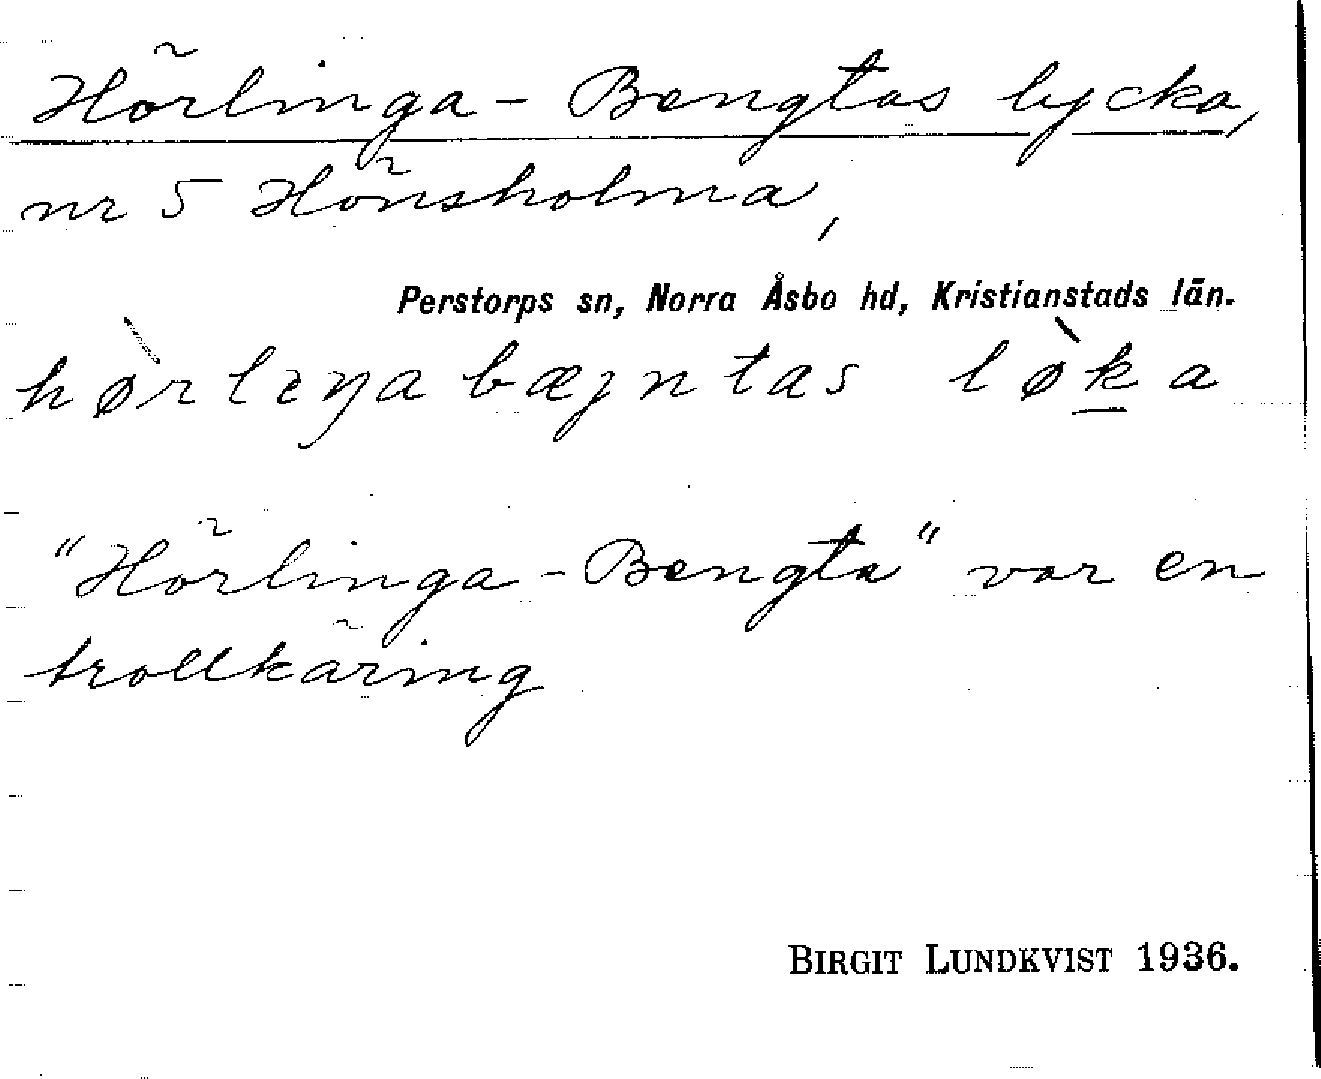 Hörlinga-Bengtas lycka,
nr 5 Hönsholma,
Perstorps sn, Norra Åsbo hd, Kristianstads län.
hø̀rleŋa bæjntas lø̀ka
"Hörlinga-Bengta" var en
trollkäring
BIRGIT LUNDKVIST 1936.